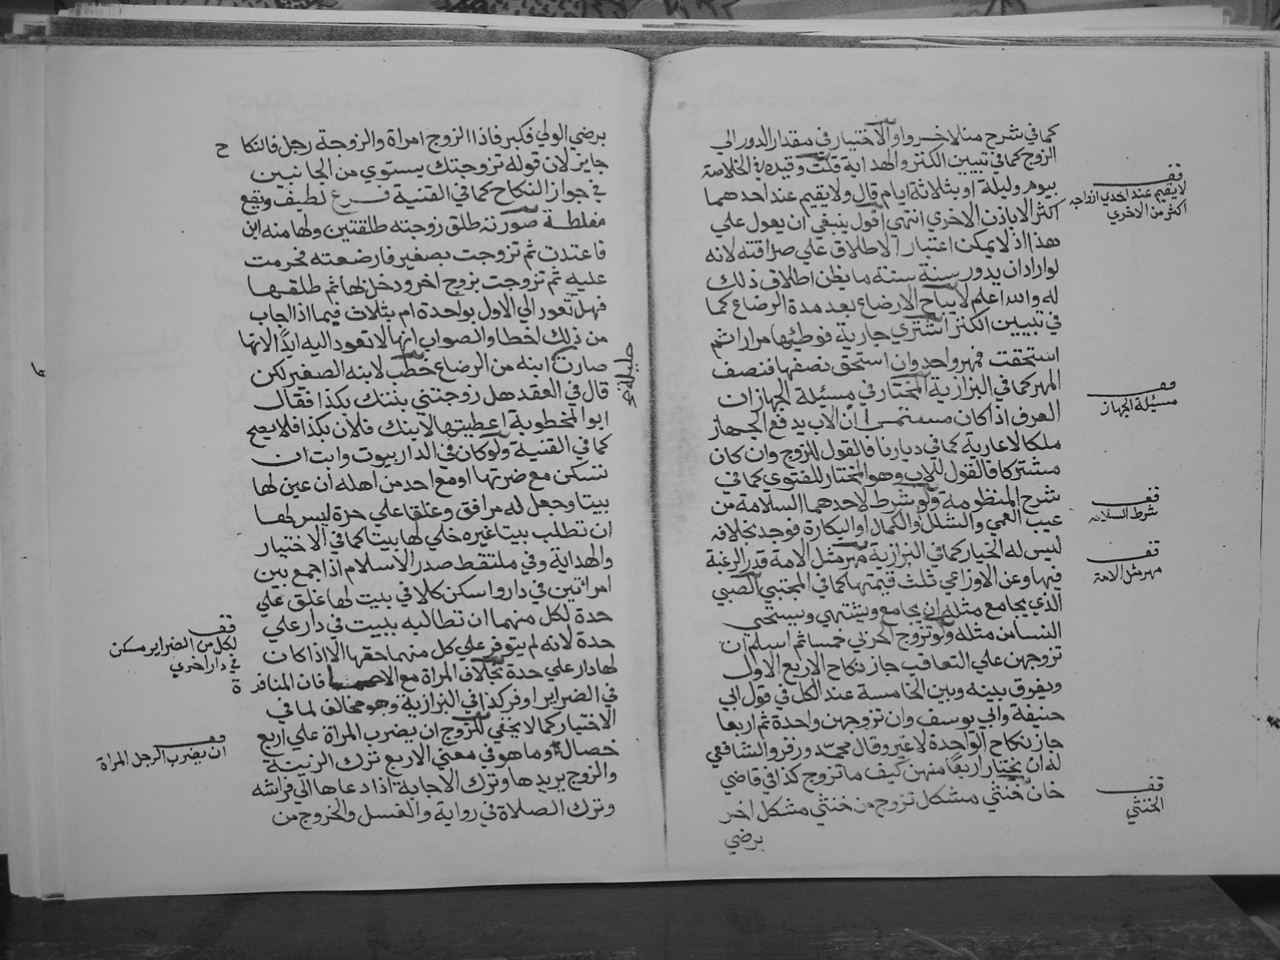 كما في شرح منلا خسرو والاختيار في مقدار الدور الى
الزوج كما في تبيين الكنز والهداية قلت وقيده في الخلاصة
بيوم وليلة او بثلاثة ايام قال ولا يقيم عند احدهما
اكثر الا باذن الاخري انتهى اقول ينبغي ان يعول علي
هذا اذ لا يمكن اعتبار الاطلاق علي صرافته لانه
لو اراد ان يدور سنة سنة ما يظن اطلاق ذلك
له والله اعلم لا يباح الارضاع بعد مدة الرضاع كما
في تبيين الكنز اشتري جارية فوطئها مرارا ثم
استحقت فمهر واحد وان استحق نصفها فنصف
المهر كما في البزازية المختار في مسيئلة الجهاز ان
العرف اذا كان مستمرا أن الاب يدفع الجهاز
ملكا لا عارية كما في ديارنا فالقول للزوج وان كان
مشتركا فالقول للاب وهو المختار للفتوي كما في
شرح المنظومة ولو شرط لاحدهما السلامة من
عيب العمي والشلل والكمال او البكارة فوجد بخلافه
ليس له الخيار كما في البزازية مهر مثل الامة قدر الرغبة
فيها وعن الاوزاعي ثلث قيمتها كما في المجتبي الصبي
الذي يجامع مثله ان يجامع ويشتهي ويستحي
النسا من مثله ولو تزوج الحربي خمسا ثم اسلم ان
تزوجهن علي التعاقب جاز نكاح الاربع الاول
ويفرق بينه وبين الخامسة عند الكل في قول ابي
حنيفة وابي يوسف وان تزوجهن واحدة ثم اربعا
جاز نكاح الواحدة لا غير وقال محمد وزفر والشافعي
له ان يختار اربعا منهن كيف ما تزوج كذا في قاضي
خان خنثي مشكل تزوج من خنثي مشكل اخر
برضي
قف
لا يقيم عند احدي ازواجه
اكثر من الاخري
قف
مسيئلة الجهاز
قف
شرط السلامة
قف
مهر مثل الامة
قف
الخنثي
برضي الولي فكبر فاذا الزوج امراة والزوجة رجل فالنكاح
جايز لان قوله تزوجتك يستوي من الجانبين
في جواز النكاح كما في القنية فرع لطيف ويقع
مغلطة صورته طلق زوجته طلقتين ولها منه ابن
فاعتدت ثم تزوجت بصغير فارضعته فحرمت
عليه ثم تزوجت بزوج اخر ودخل بها ثم طلقها
فهل تعود الي الاول بواحدة ام بثلاث فيما اذا اجاب
من ذلك اخطا والصواب انها لا تعود اليه ابدا لانها
صارت ابنه من الرضاع خطب لابنه الصغير لكن
قال في العقد هل زوجتني بنتك بكذا فقال
ابو المخطوبة اعطيتها لابنك فلان بكذا فلا يصح
كما في القنية ولو كان في الدار بيوت وابت ان
تسكن مع ضرتها او مع احد من اهله أن عين لها
بيتا وجعل له مرافق وغلقا علي حدة ليس لها
ان تطلب بيتا غيره خلي لها بيتا كما في الاختيار
والهداية وفي ملتقط صدر الاسلام اذا جمع بين
امراتين في دار واسكن كلا في بيت لها غلق علي
حدة لكل منهما ان تطالبه ببيت في دار علي
حدة لانه لم يتوفر علي كل منهما حقها الا اذا كان
لها دار علي حدة بخلاف المراة مع فان المنافرة
في الضراير اوفر كذا في البزازية وهو مخالف لما في
الاختيار كما لا يخفي للزوج ان يضرب المراة علي اربع
خصال وما هو في معني الاربع ترك الزينة
والزوج يريدها وترك الاجابة اذا دعاها الي فراشه
وترك الصلاة في رواية والغسل والخروج من
قف
لكل من الضراير مسكن
في دار اخري
قف
ان يضرب الرجل المراة